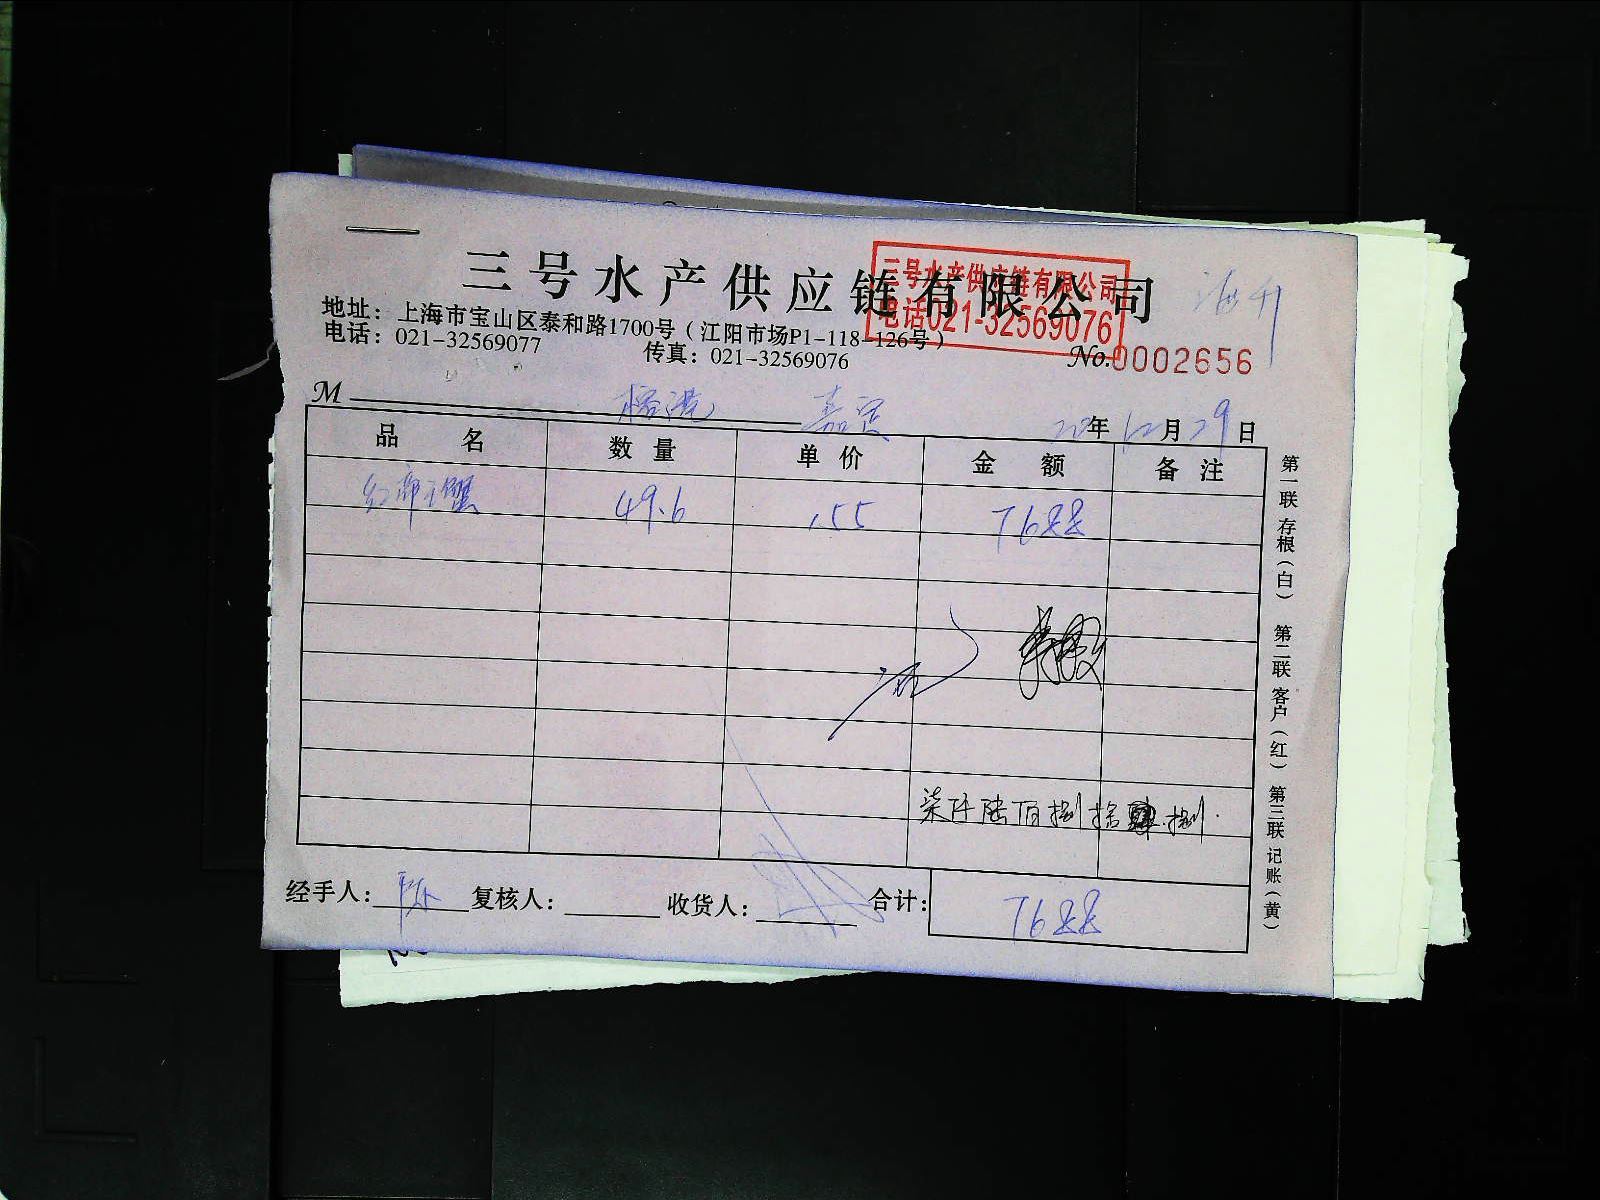 三号水产供应链有限公司
三号水产供应链有限公司
电话021-32569076
地址：上海市宝山区泰和路1700号（江阳市场P1-118-126号）
电话：021-32569077 传真：021-32569076
No.0002656
M 嘉宾 年12月29日
品名 数量 单价 金额 备注
红帝王蟹 49.6 155 7688
柒仟陆佰捌拾捌.
经手人：陈 复核人： 收货人： 合计：7688
第一联 存根（白） 第二联 客户（红） 第三联 记账（黄）